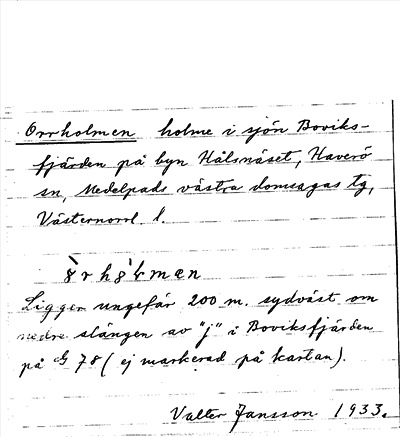 Orrholmen holme i sjön Boviks-
fjärden på byn Hålsnäset, Haverö
sn, Medelpads västra domsagas tg,
Västernorrl. l.
Ligger ungefär 200 m. sydväst om
nedre slängen av "j" i Boviksfjärden
på 78 (ej markerad på kartan).
Valter Jansson 1933.